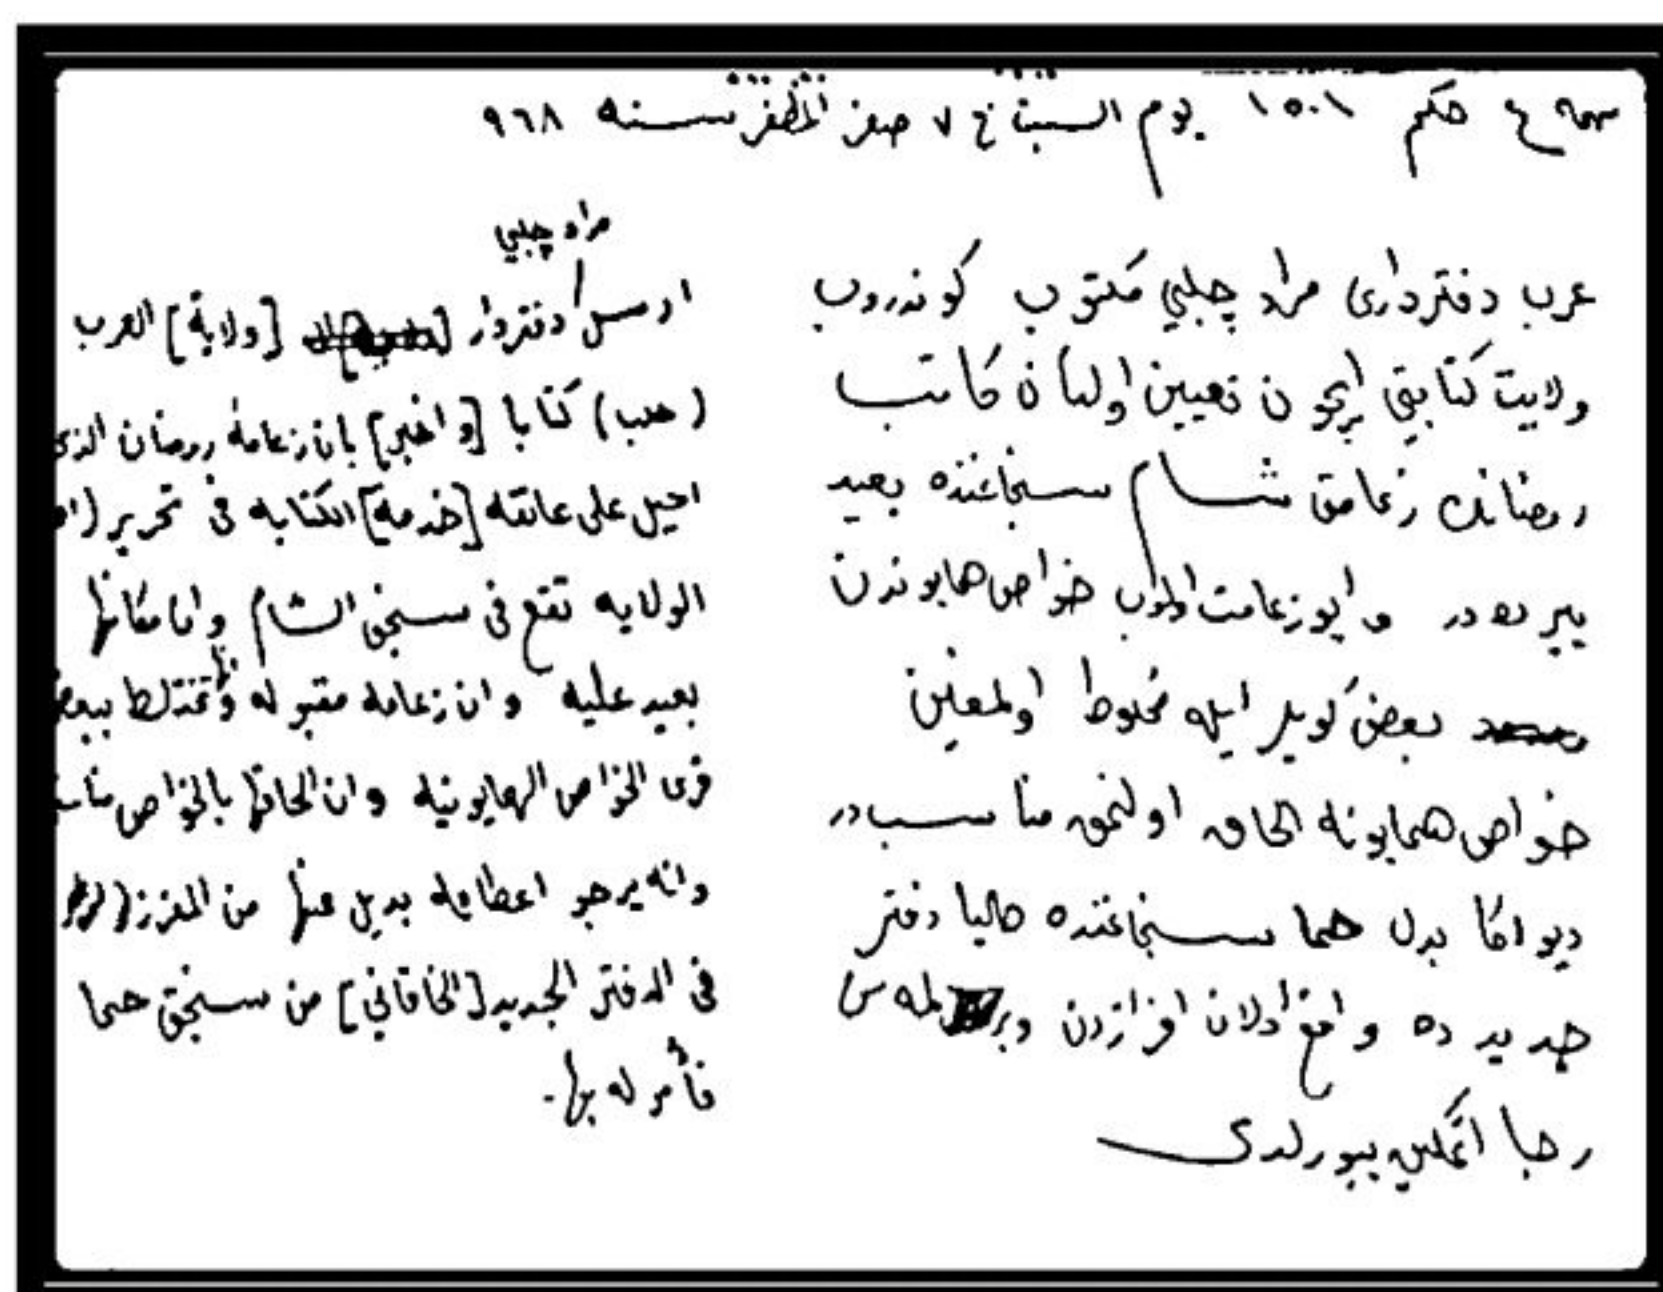 حكم ١٥٠١ يوم السبت في ٧ صفر المظفر سنه ٩٦٨
عرب دفترداری مراد چلبي مكتوب كوندروب
ولايت كتابتي ايچون تعيين اولنان كاتب
رمضانك زعامتی شام سنجاغنده بعيد
ييرده در و ايو زعامت اولوب خواص همايوندن
بعض كويلر ايله مخلوط اولمغين
خواص همايونه الحاق اولنمق مناسبدر
ديو اكا بدل حما سنجاغنده حاليا دفتر
جديد ده واقع اولان افرازدن
رجا اتمكين بيورلدی
مراد چلبي
ارسل دفتردار [ولاية] العرب
(حلب) كتابا [و اخبر] بان زعامة رمضان الذی
احيل على عاتقه [خدمة] الكتابه فى تحرير
الولايه تقع فى سنجق الشام وانا مكانها
بعيد عليه وان زعامه مقبوله وتختلط ببعض
قرى الخواص الهمايونيه وان الحاقها بالخواص
وانه يرجو اعطاءه بديل عنها من المفرز
فى الدفتر الجديد [الخاقاني] من سنجق حما
فأمر له بها.